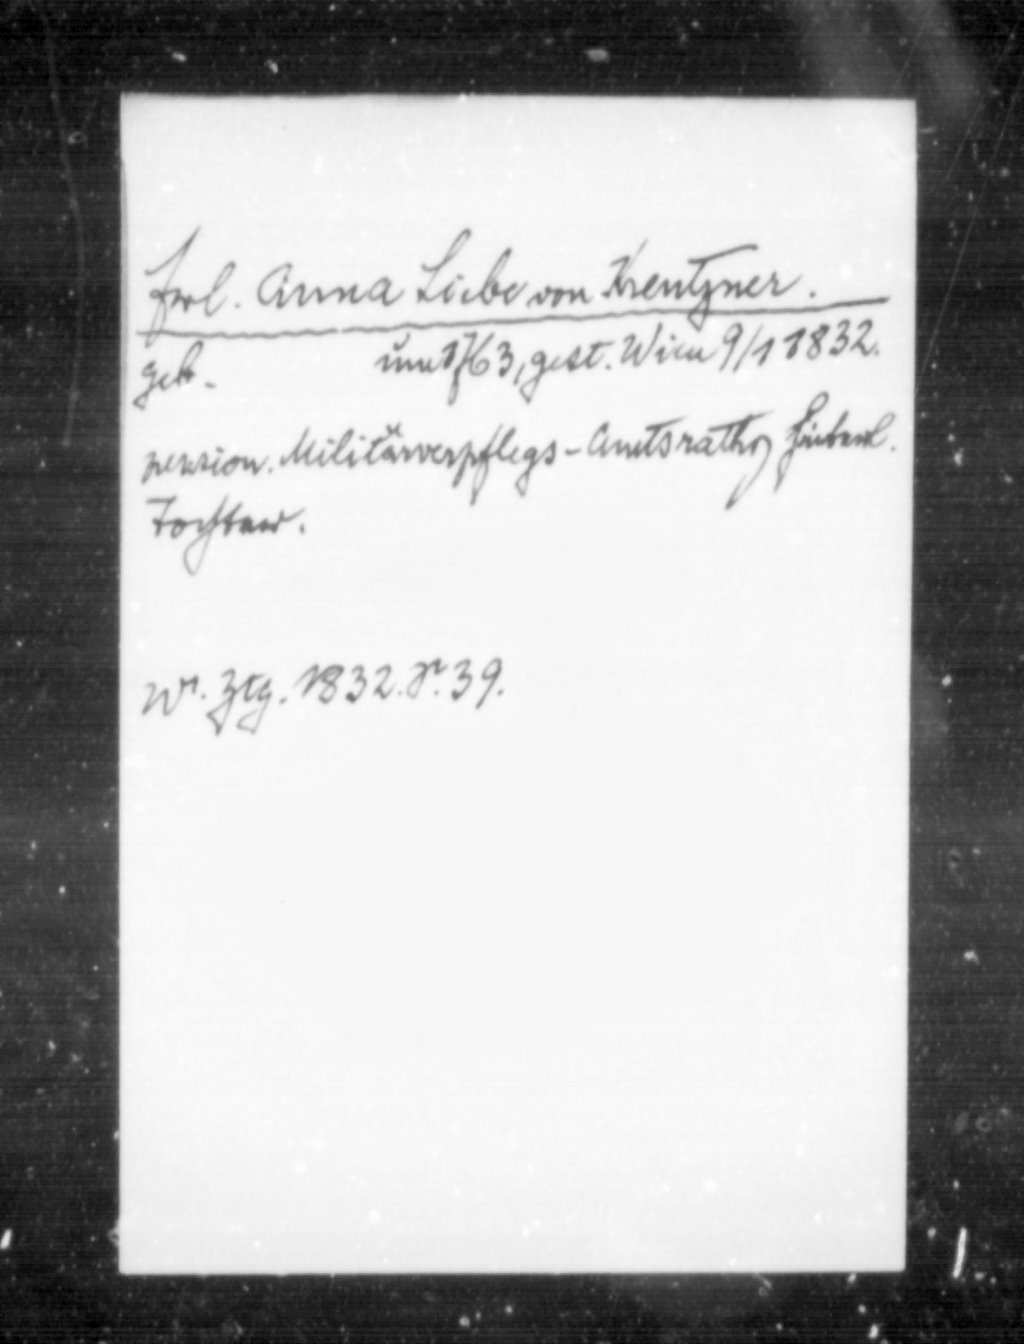 Frl. Anna Liebe von Kreutzner.
geb. um 1763, gest. Wien 9/1 1832.
pension. Militärverpflegs-Amtsraths hinterl.
Tochter.
Wr. Ztg. 1832. Nr. 39.